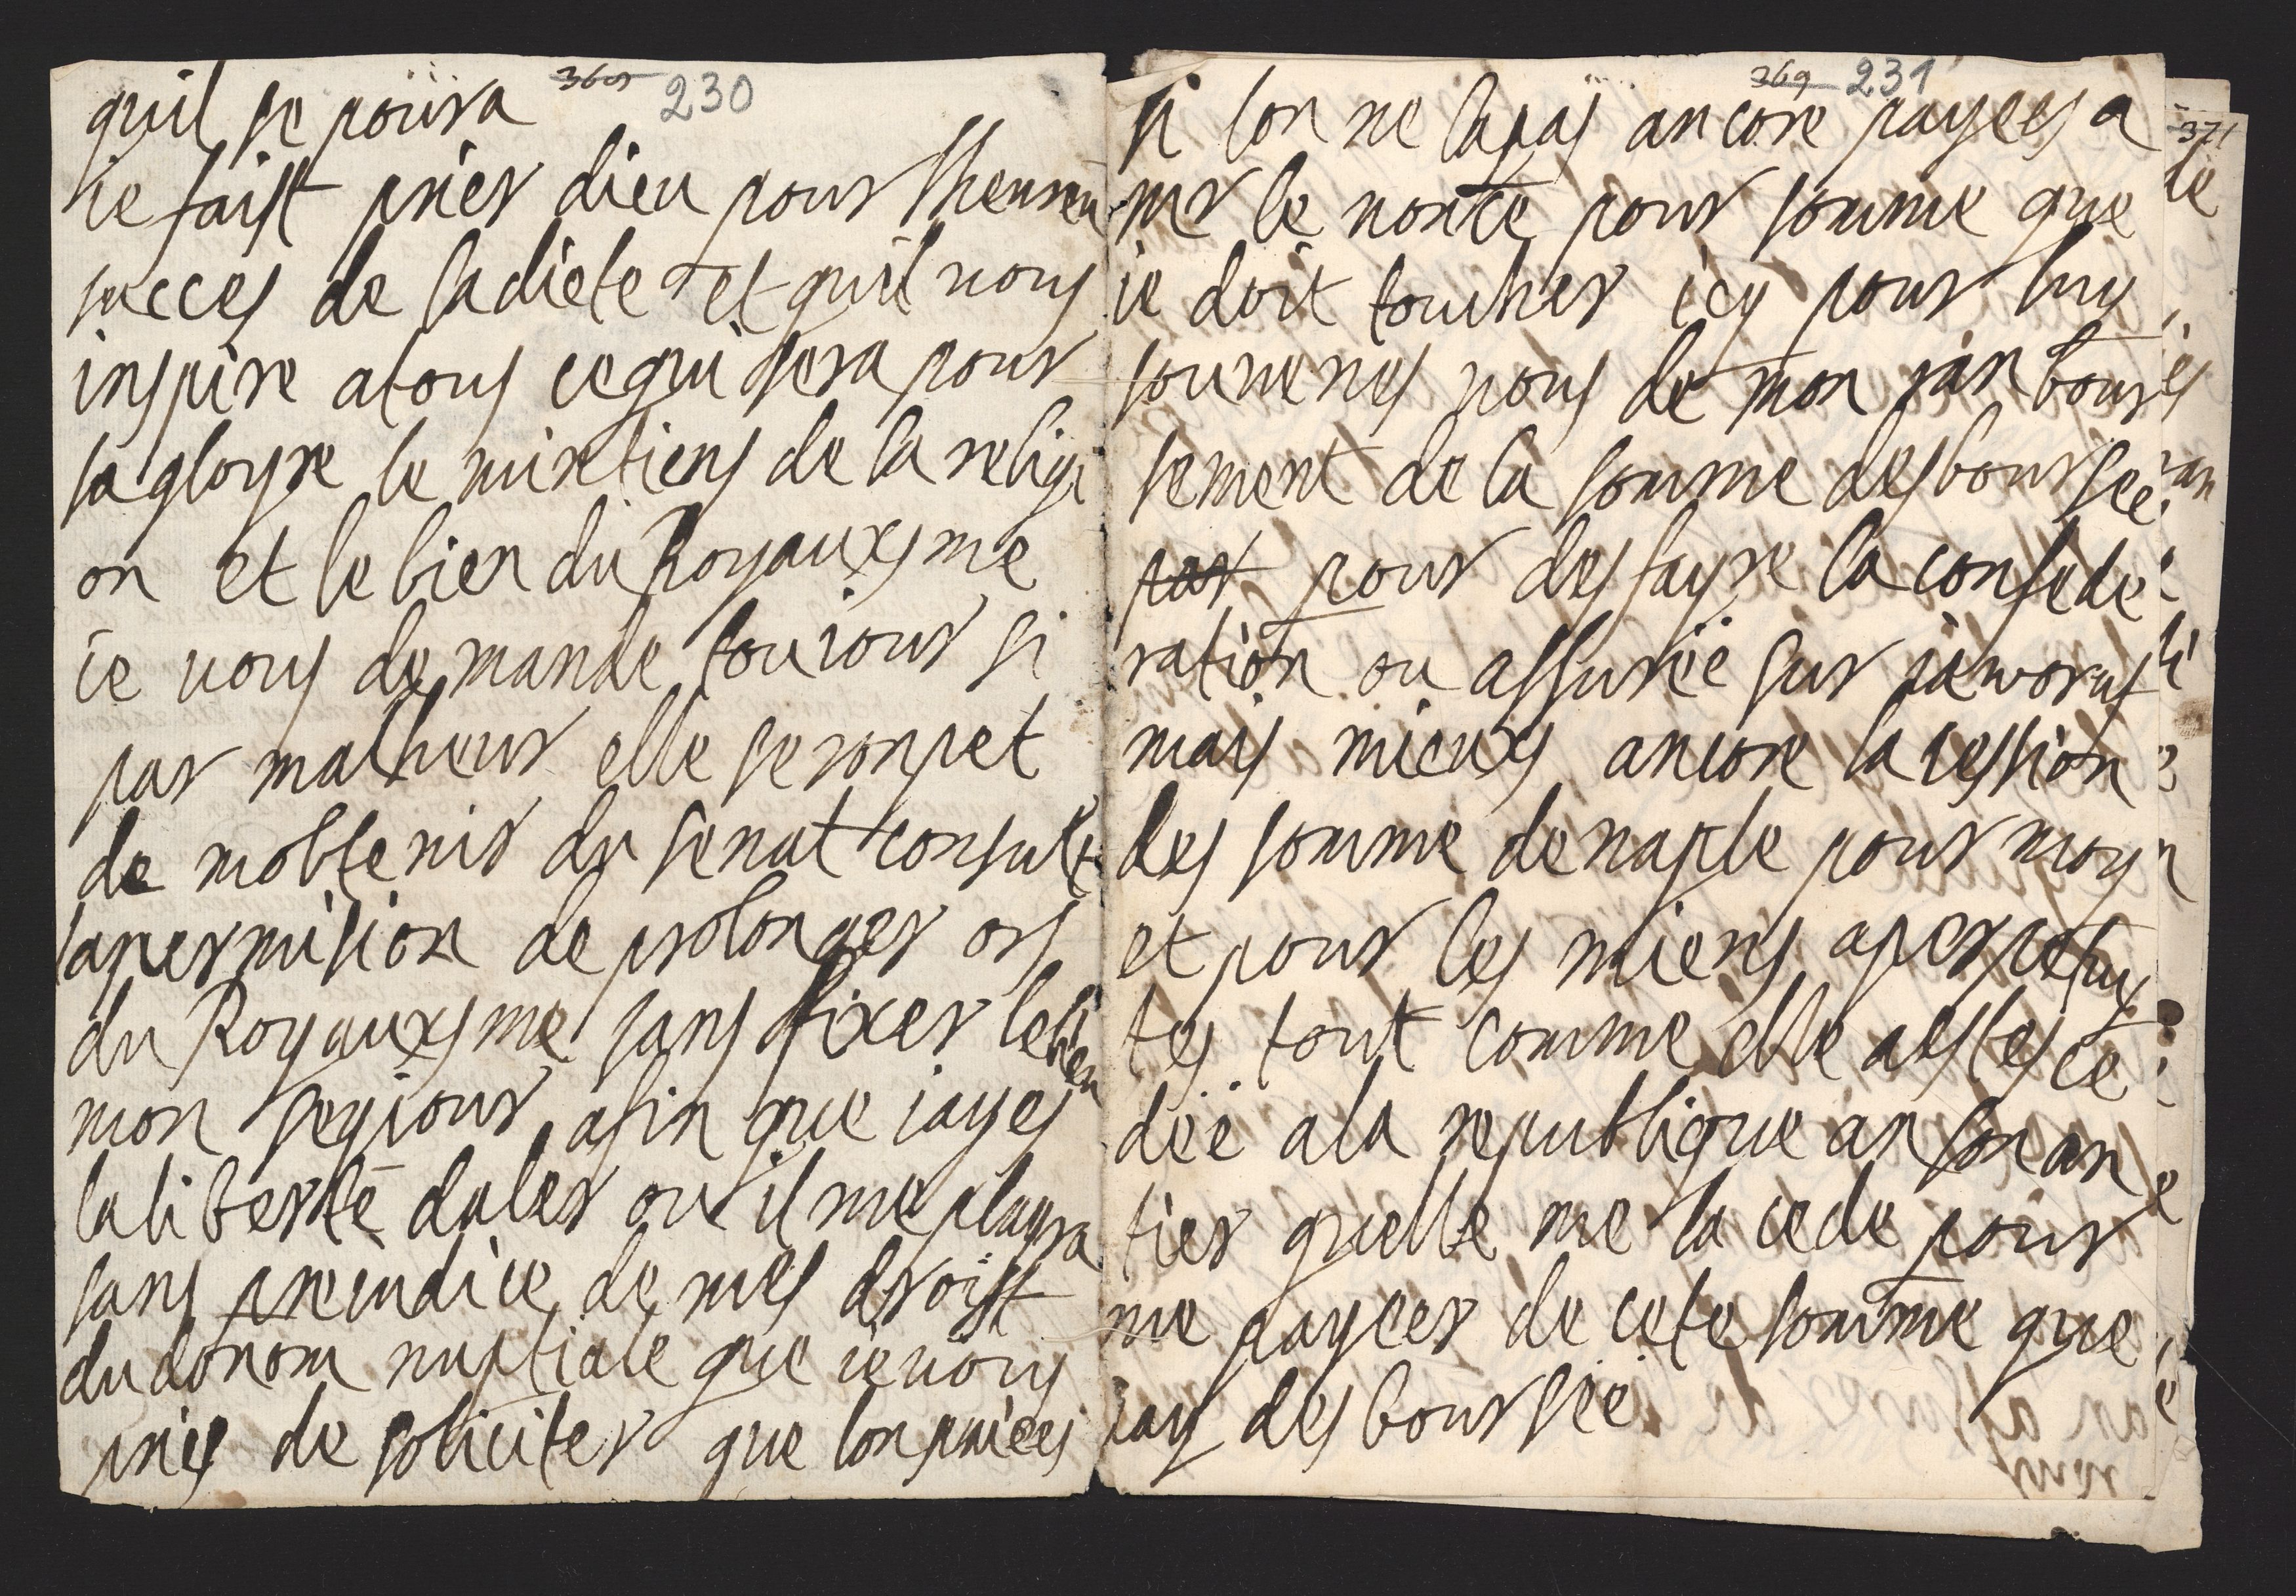 230
quil se poura
ie faist prier dieu pour lheureu
succes de ladiete et quil vous
inspire atous cequi sera pour
sa gloyre le mintiens de la religi
on et le bien du Royauxsme
ie vous demande touiour si
par malheur elle se ronpet
de mobtenir du senat consulte
lapermision de prolonger ors
du Royauxsme sans fixer le lieu
mon seyiour afin que iayes
la liberté daler ou il me playra
sans preiudice de mes droist
du donom nuptiale que ie vous
pries de soliciter que lon paiees
369 231
si lon ne lapas ancore payees a
mr le nonce pour somme que
ie doit toucher icy pour luy
souvenes vous de mon ranbour
sement de la somme desboursée
par pour desfayre la confédé
ration ou assurée sur iaworuf
mais mieuxs ancore la cession
des somme de naple pour moy
et pour les miens aperpetui
tes tout comme elle astes cé
dée ala republique an son an
tier quelle me la cede pour
me payeer de cete somme que
iay desboursée
371